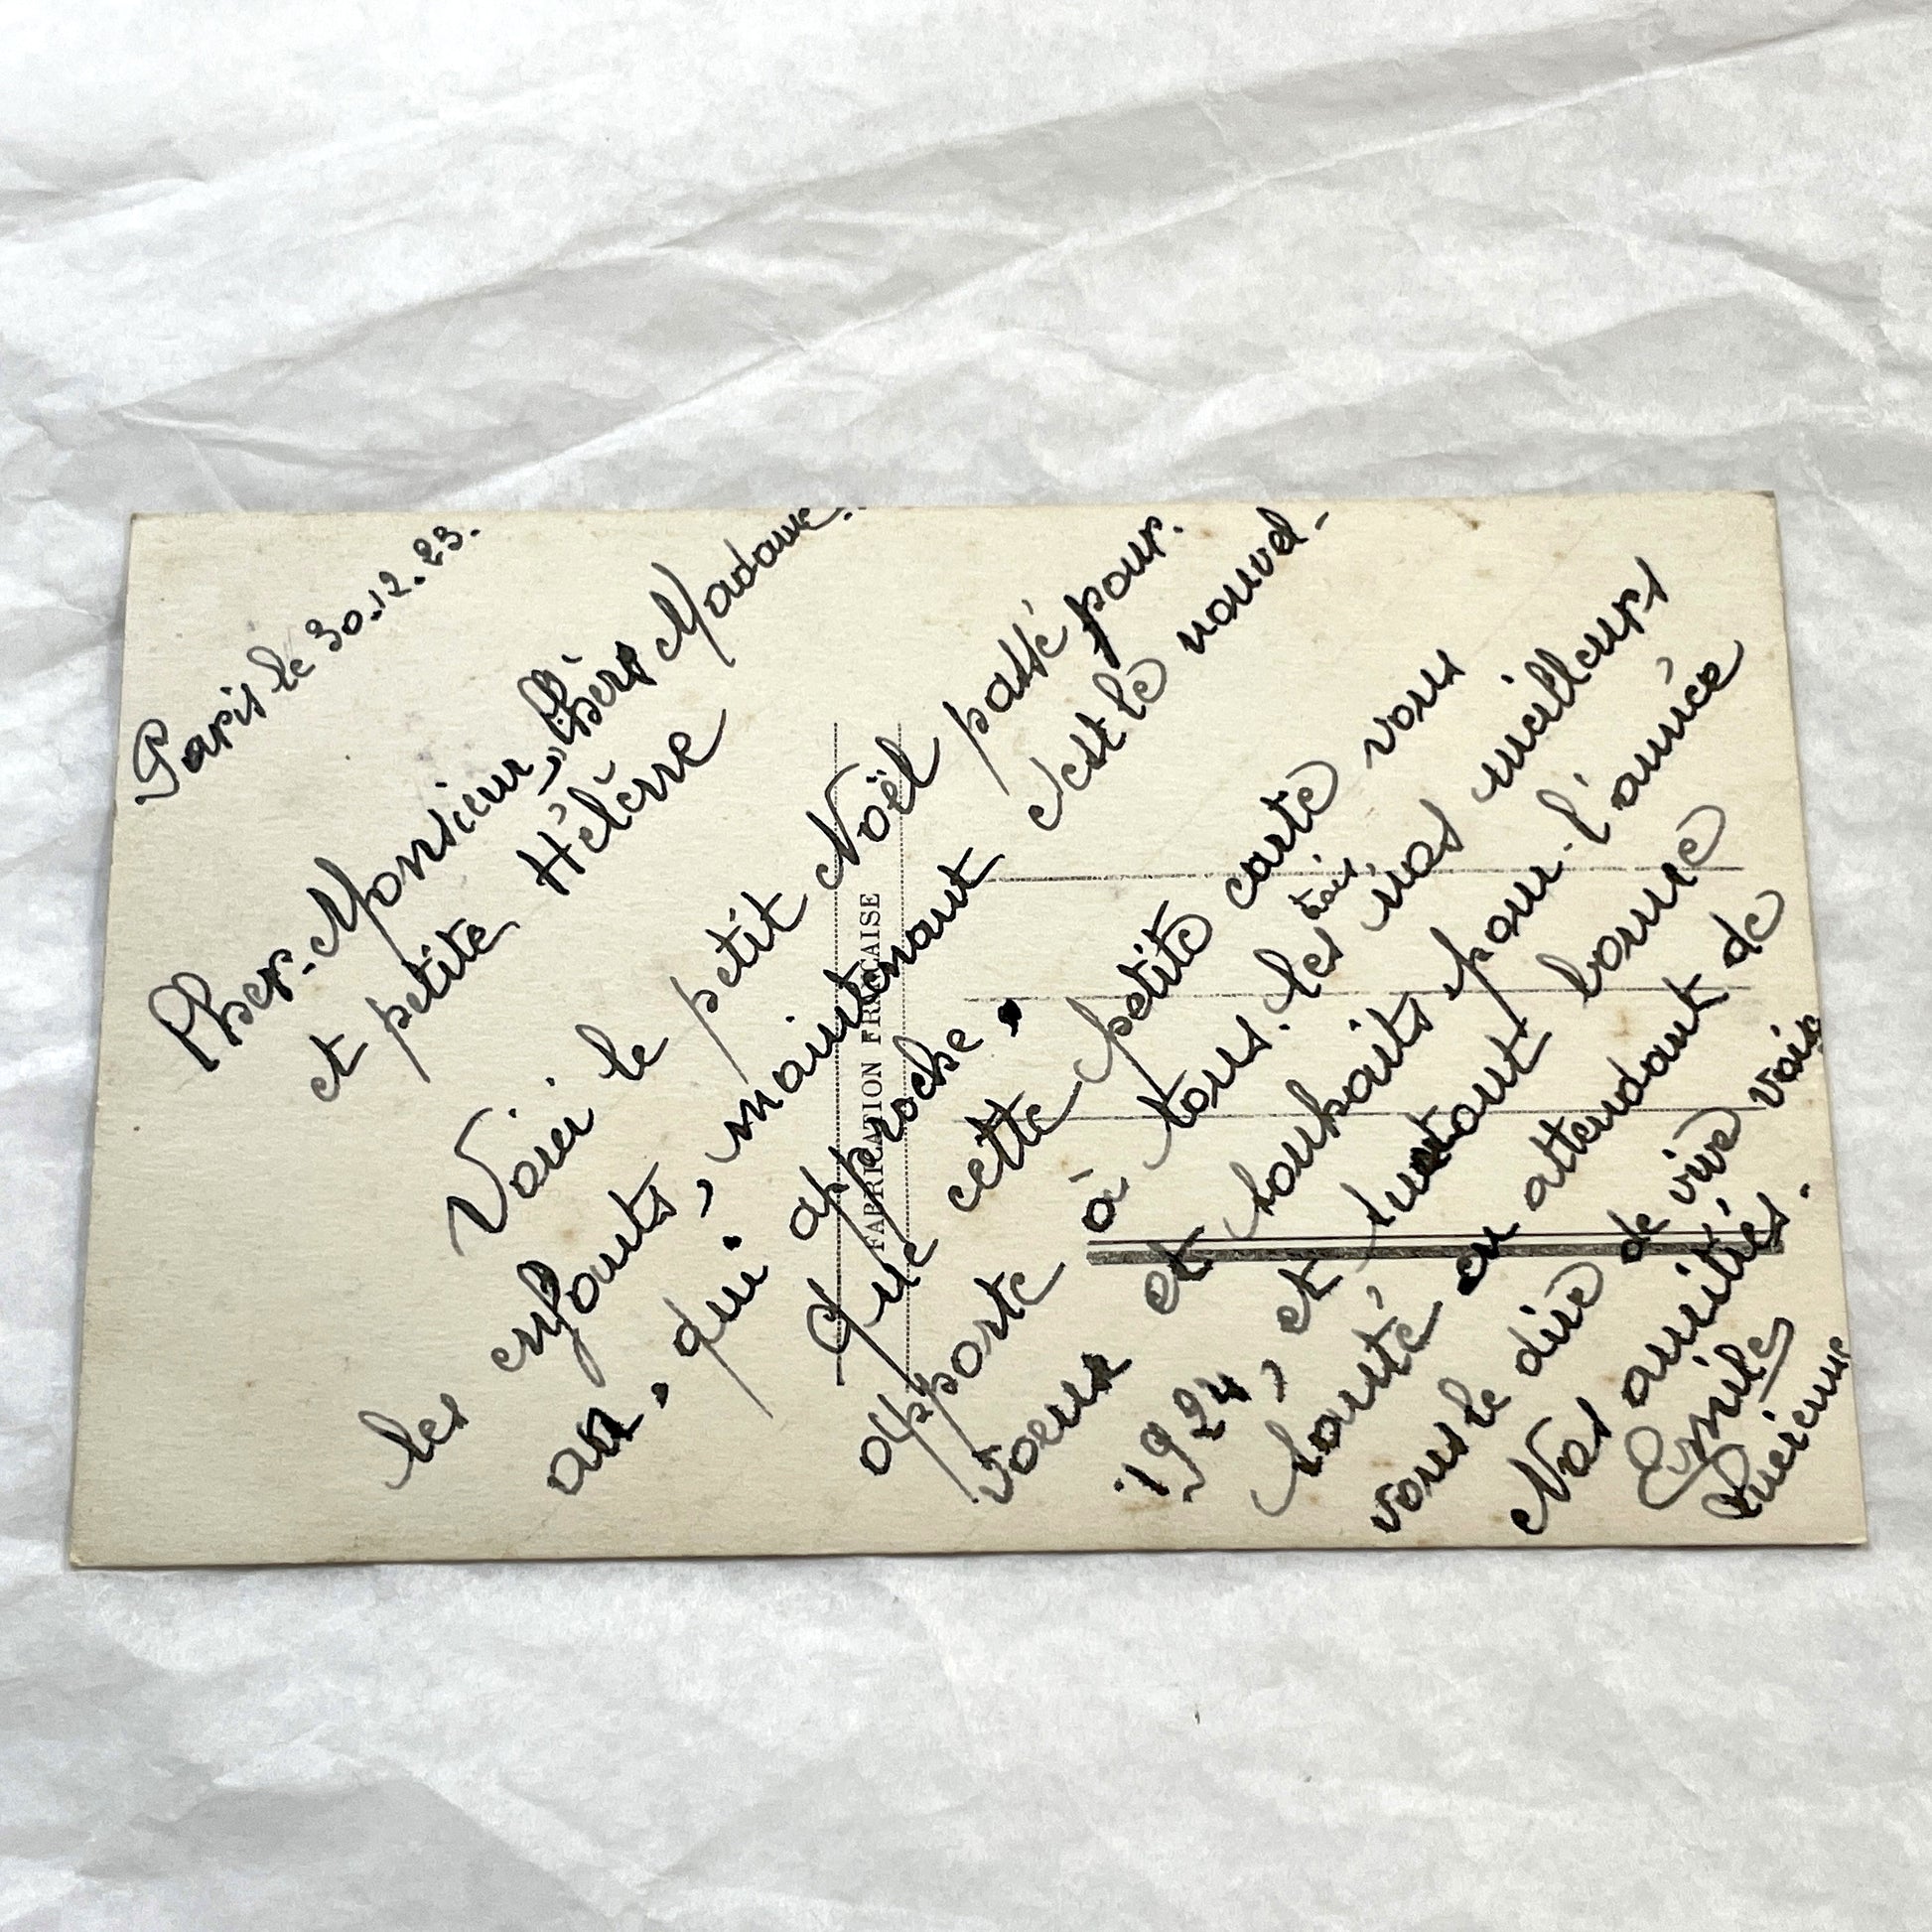 Paris le 30.12.23.
Cher Monsieur, Chère Madame.
et petite Hélène
Voici le petit Noël passé pour.
les enfants, maintenant c'est le nouvel-
an. qui. approche.
Que cette petite carte vous
apporte à tous. les nos meilleurs
voeux et souhaits pour. l'année
1924, et surtout bonne
santé, en attendant de
vous le dire de vive voix
Nos amitiés.
Emile
Lucienne
FABRICATION FRANÇAISE